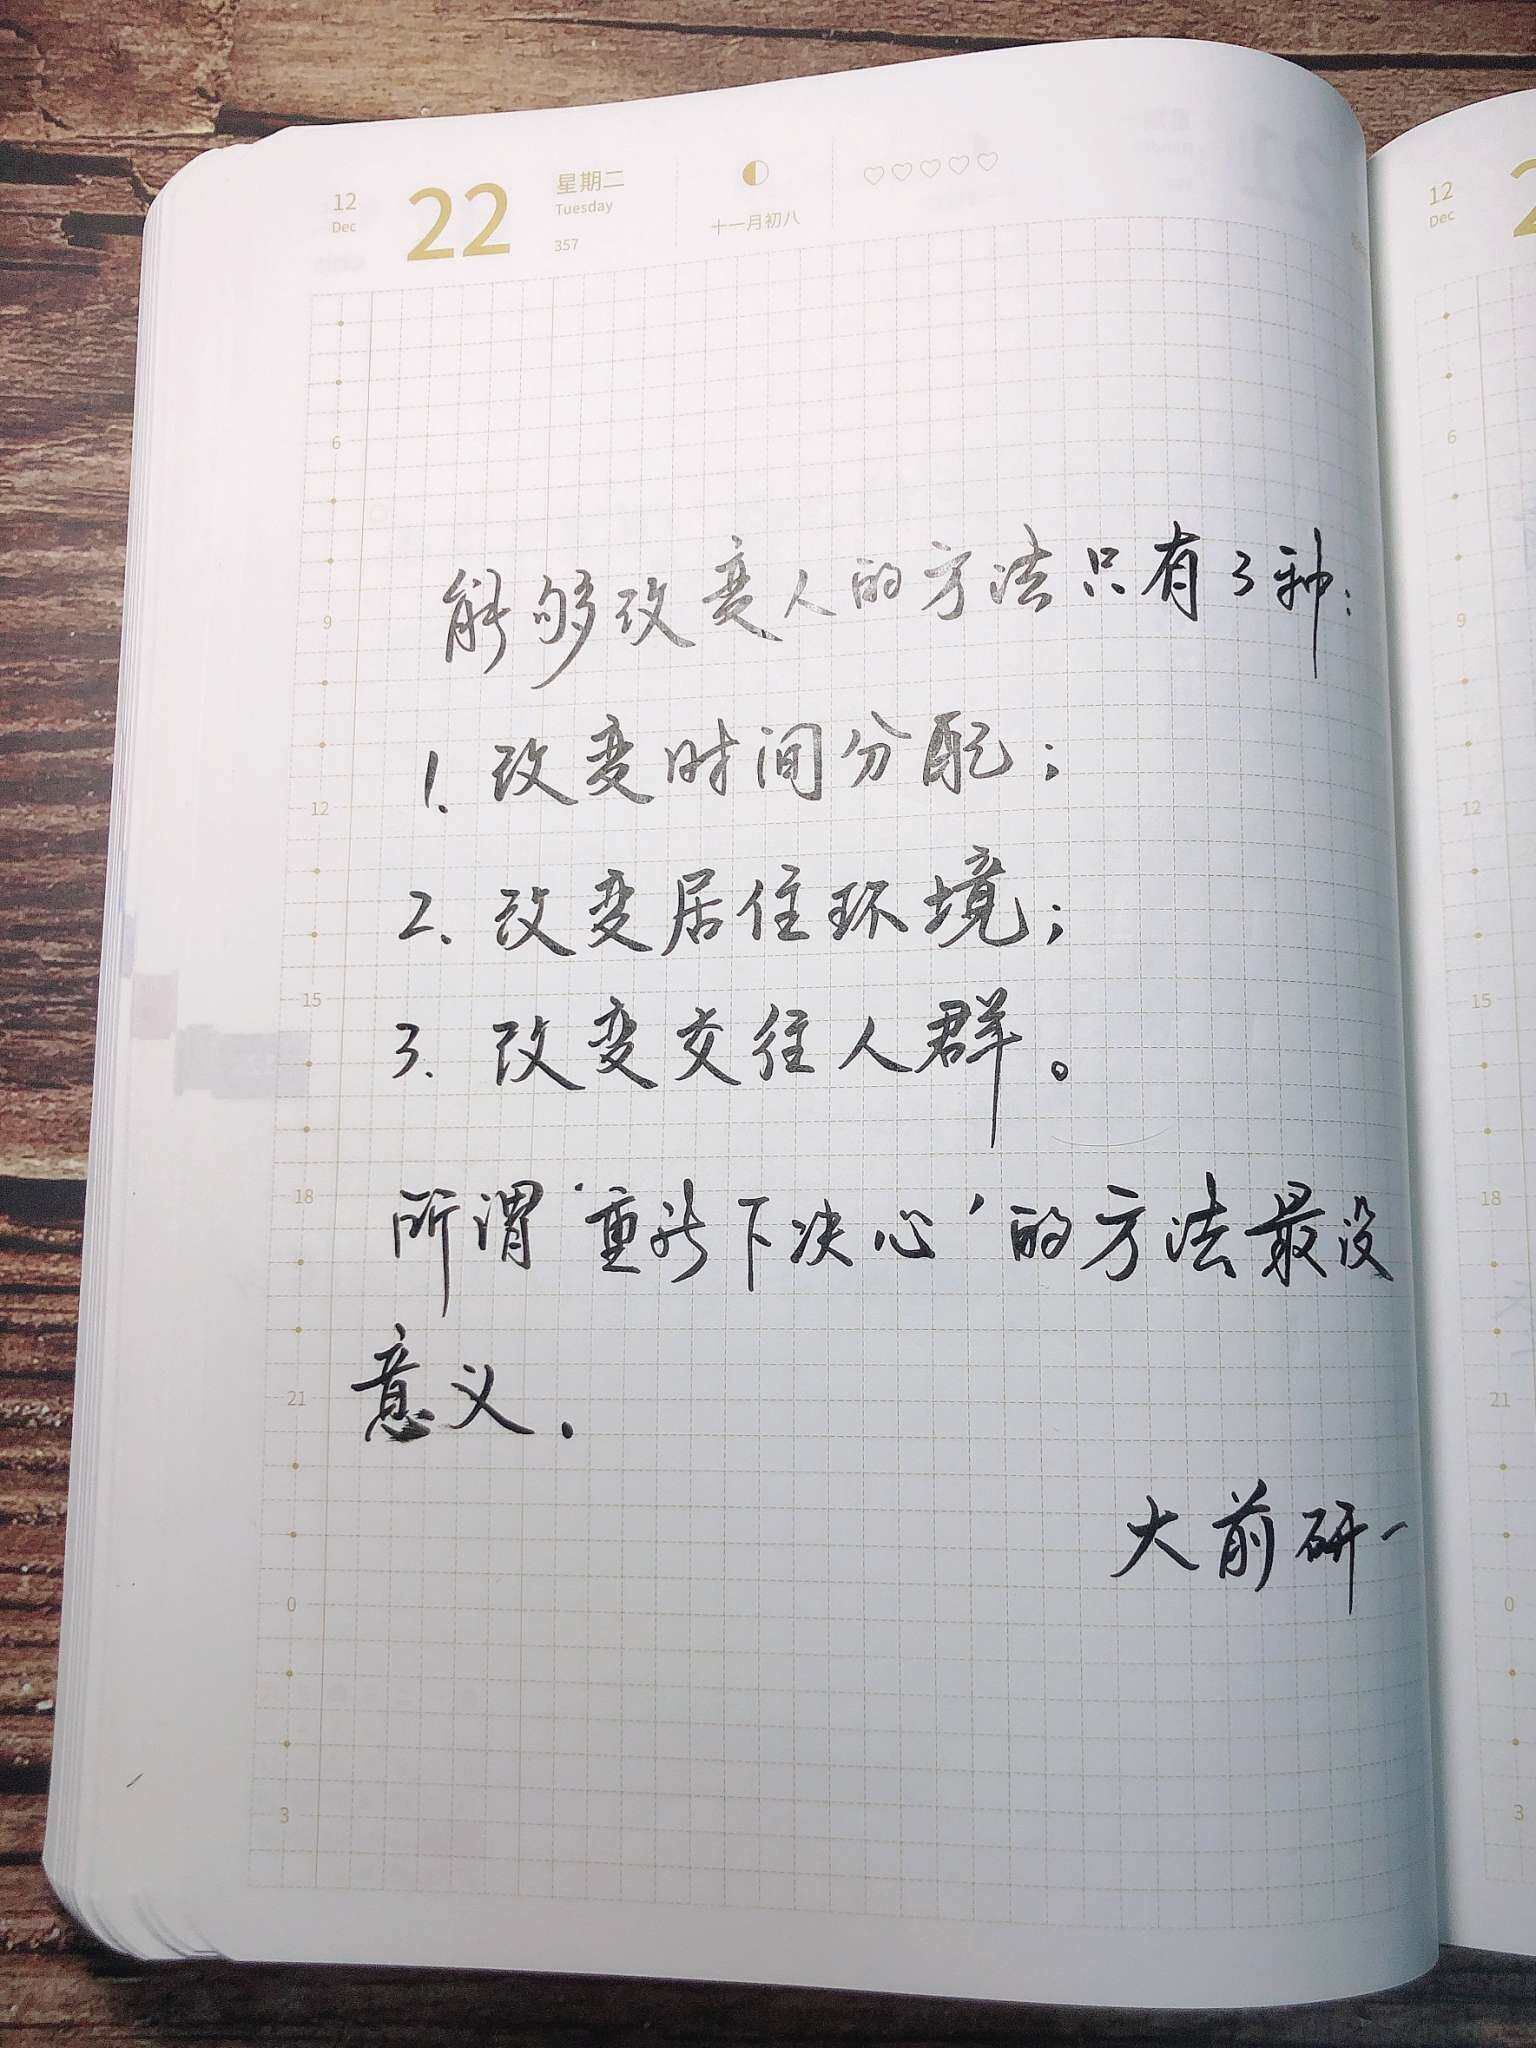 12
Dec
22
星期二
Tuesday
357
十一月初八
能够改变人的方法只有3种：
1. 改变时间分配；
2. 改变居住环境；
3. 改变交往人群。
所谓‘重新下决心’的方法最没
意义.
大前研一
6
9
12
15
18
21
0
3
12
Dec
2
6
9
12
15
18
21
0
3